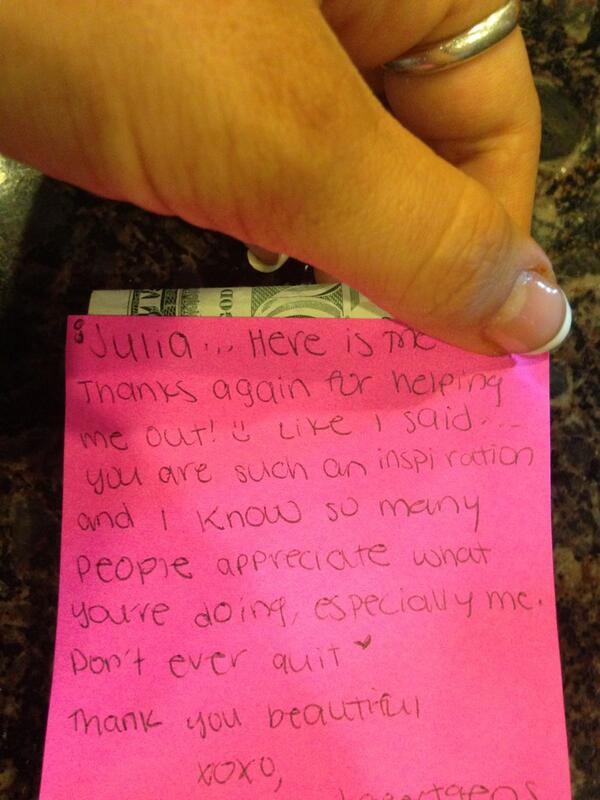 Julia... Here is
Thanks again for helping
me out! Like I said...
you are such an inspiration
and I know so many
people appreciate what
you're doing, especially me.
Don't ever quit
Thank you beautiful
xoxo,